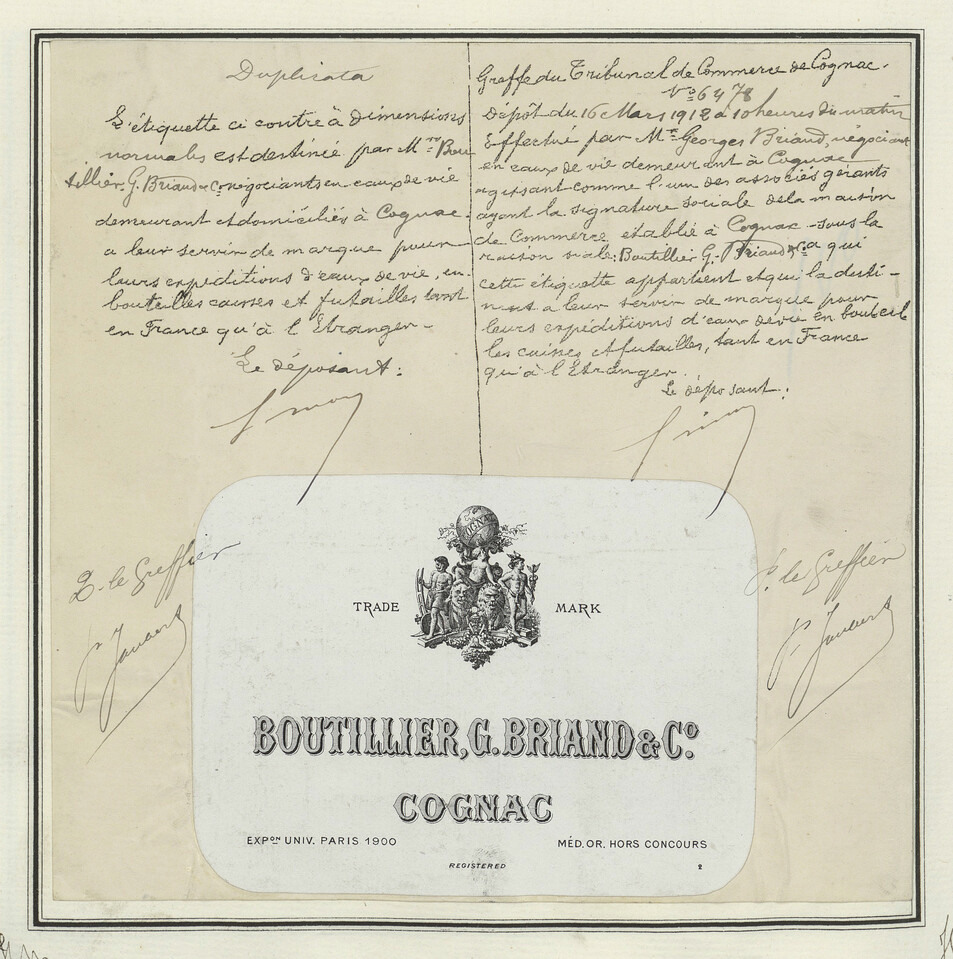 Duplicata
L'étiquette ci contre à dimensions
normales est destinée par Mrs Bou
tillier, G. Briand & Co négociants en eaux de vie
demeurant et domiciliés à Cognac.
a leur servir de marque pour
leurs expéditions d'eaux de vie, en
bouteilles caisses et futailles tant
en France qu'à l'Etranger.
Le déposant:
Greffe du Tribunal de Commerce de Cognac.
No 6478
Dépôt du 16 Mars 1912 à 10 heures du matin
Effectué par Mr Georges Briand, négociant
en eaux de vie demeurant à Cognac
agissant comme l'un des associés gérants
ayant la signature sociale de la maison
de Commerce etablie à Cognac sous la
raison s-ale: Boutillier G. Briand & Co a qui
cette étiquette appartient et qui la desti-
nent a leur servir de marque pour
leurs expéditions d'eaux de vie en bouteil
les caisses et futailles, tant en France
qu'à l'Etranger.
Le déposant:
P. le Greffier
P. le Greffier
COGNAC
TRADE MARK
BOUTILLIER, G. BRIAND & Co.
COGNAC
EXPON UNIV. PARIS 1900
MÉD. OR. HORS CONCOURS
REGISTERED
2